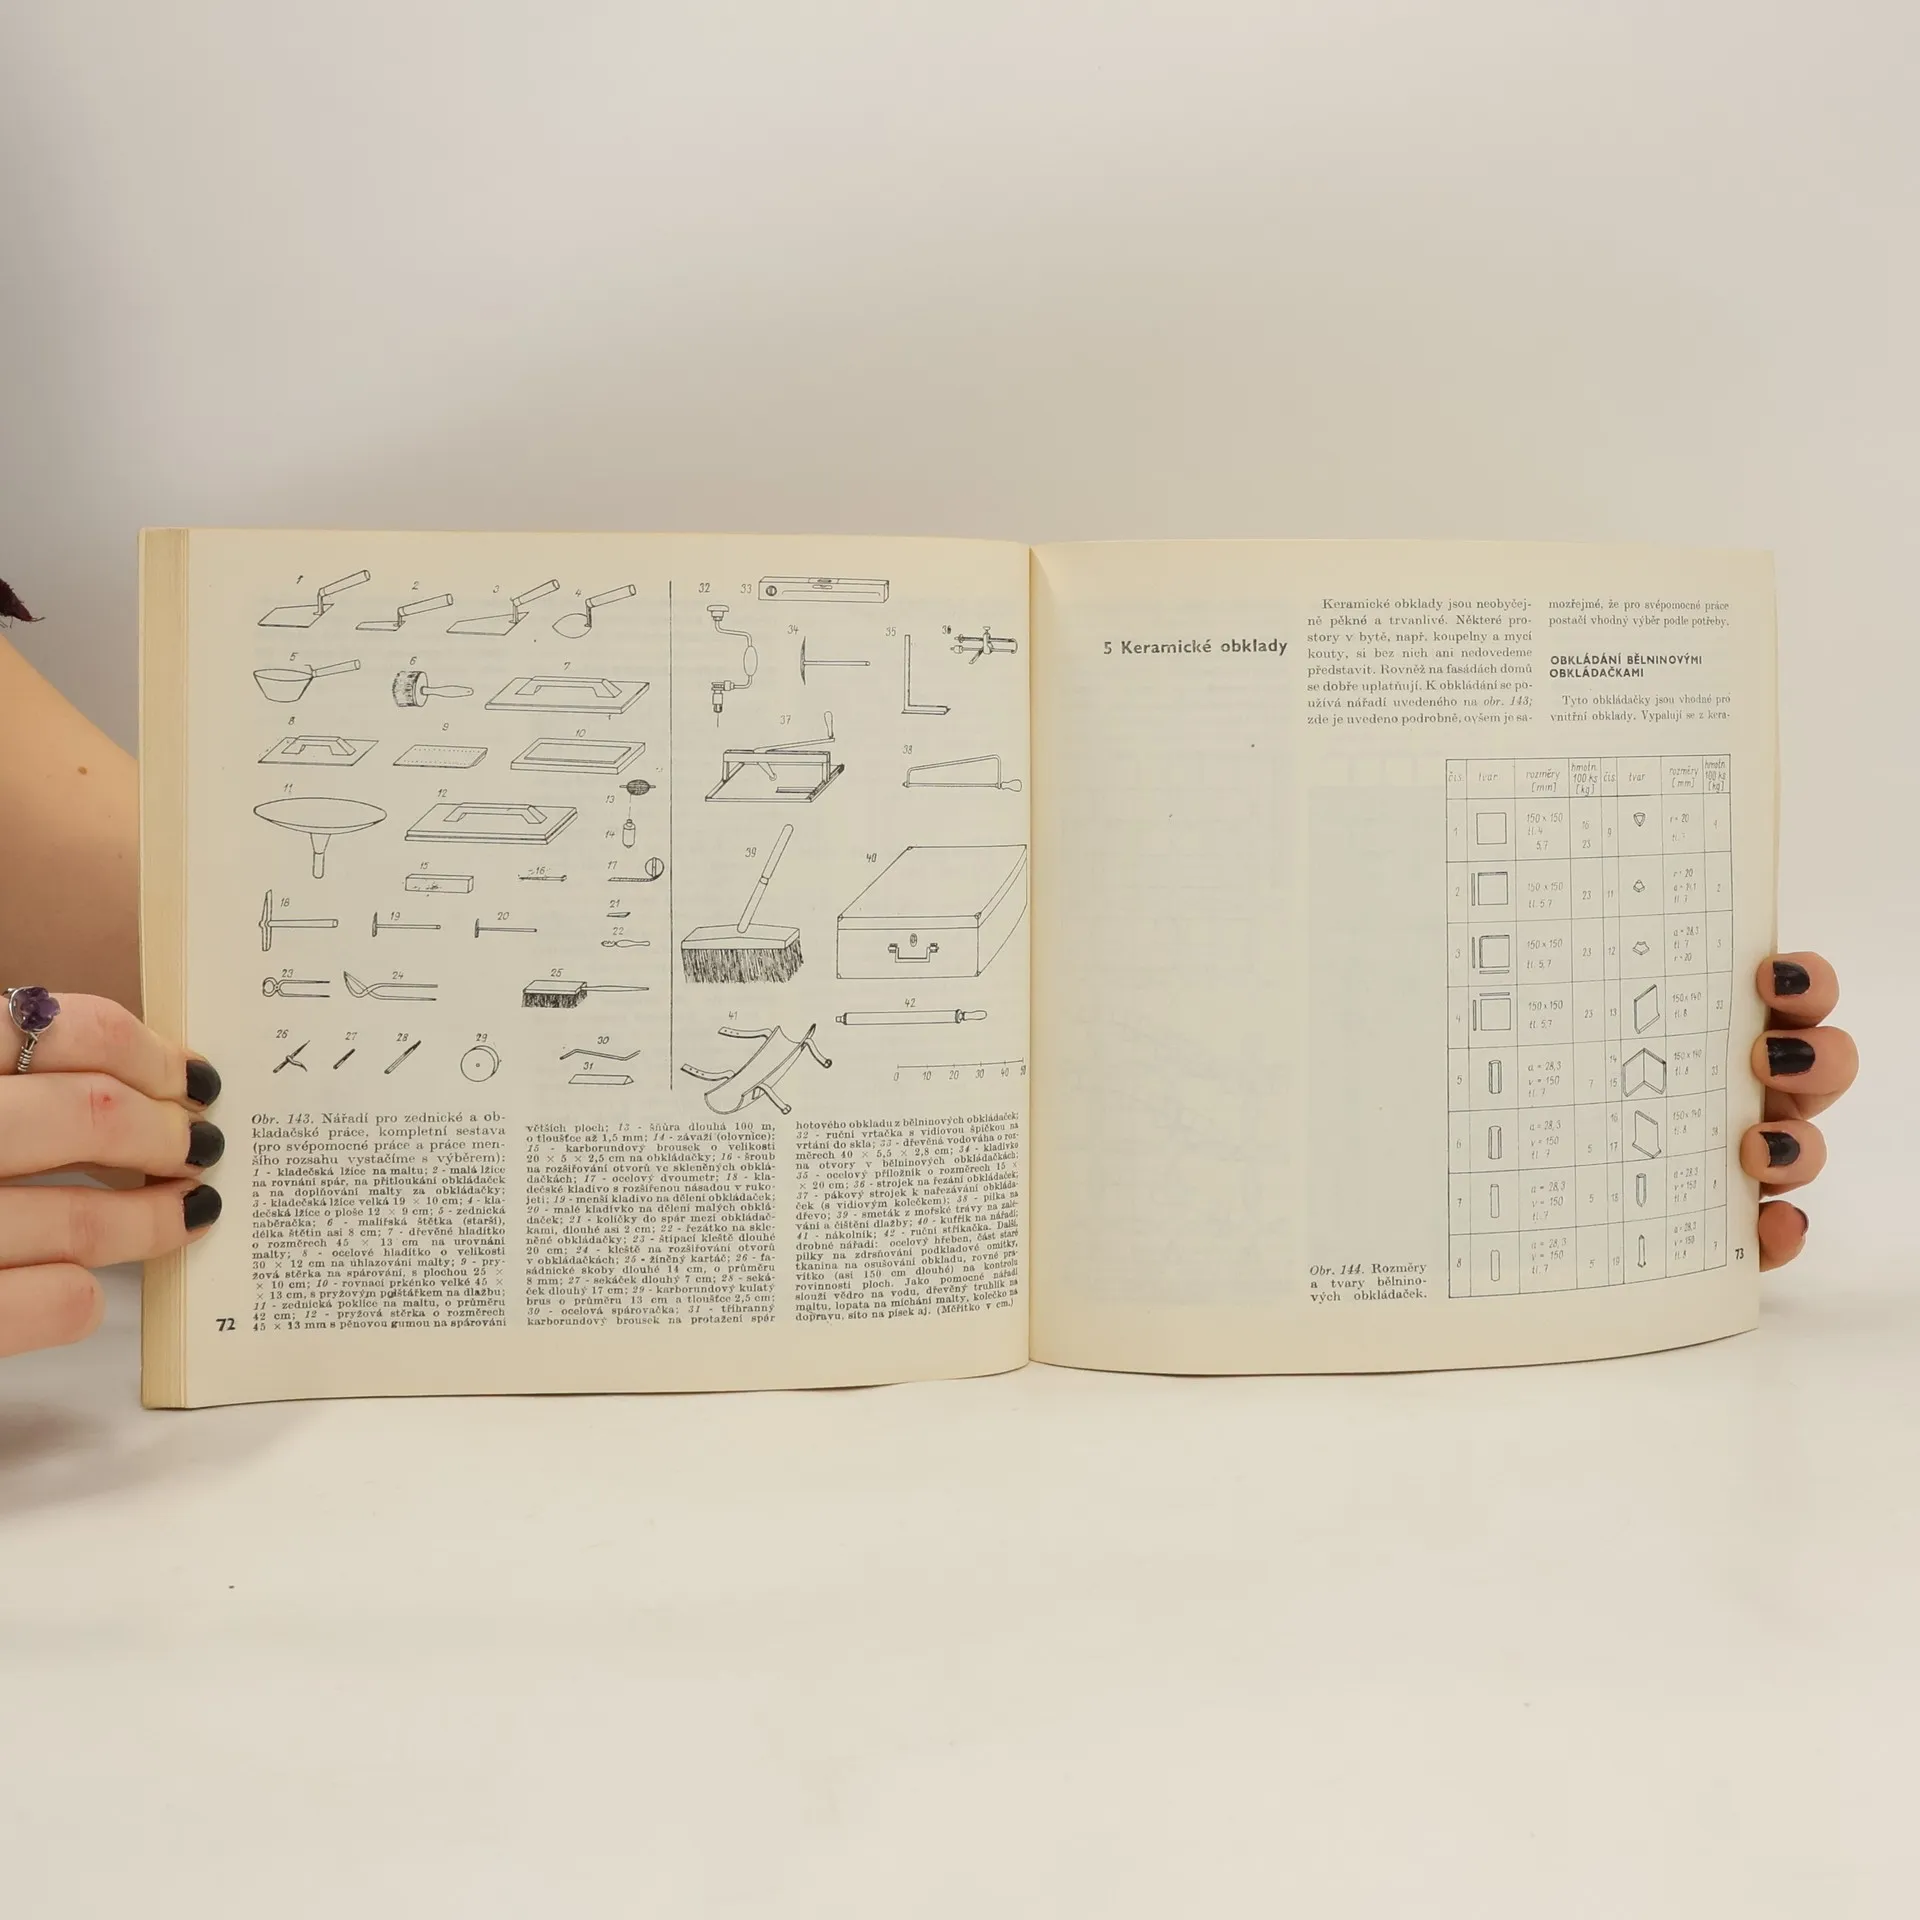 1 2 3 4
5 6 7
8 9 10
11 12 13
14
15 16 17
18 19 20 21
22
23 24 25
26 27 28 29 30
31
32 33
34 35
37 38
39 40
41 42
0 10 20 30 40
Obr. 143. Nářadí pro zednické a ob-
kladačské práce, kompletní sestava
(pro svépomocné práce a práce men-
šího rozsahu vystačíme s výběrem):
1 - kladečská lžíce na maltu; 2 - malá lžíce
na rovnání spár, na přitloukání obkládaček
a na doplňování malty za obkládačky;
3 - kladečská lžíce velká 19 × 10 cm; 4 - kla-
dečská lžíce o ploše 12 × 9 cm; 5 - zednická
naběračka; 6 - malířská štětka (starší),
délka štětin asi 8 cm; 7 - dřevěné hladítko
o rozměrech 45 × 13 cm na urovnání
malty; 8 - ocelové hladítko o velikosti
30 × 12 cm na úhlazování malty; 9 - pry-
žová stěrka na spárování, s plochou 25 ×
× 10 cm; 10 - rovnací prkénko velké 45 ×
× 13 cm, s pryžovým polštářkem na dlažbu;
11 - zednická poklice na maltu, o průměru
42 cm; 12 - pryžová stěrka o rozměrech
45 × 13 mm s pěnovou gumou na spárování
72
větších ploch; 13 - šňůra dlouhá 100 m,
o tloušťce až 1,5 mm; 14 - závaží (olovnice);
15 - karborundový brousek o velikosti
20 × 5 × 2,5 cm na obkládačky; 16 - šroub
na rozšiřování otvorů ve skleněných obklá-
dačkách; 17 - ocelový dvoumetr; 18 - kla-
dečské kladivo s rozšířenou násadou v ruko-
jeti; 19 - menší kladivo na dělení obkládaček;
20 - malé kladívko na dělení malých obklá-
daček; 21 - kolíčky do spár mezi obkládač-
kami, dlouhé asi 2 cm; 22 - řezátko na skle-
něné obkládačky; 23 - štípací kleště dlouhé
20 cm; 24 - kleště na rozšiřování otvorů
v obkládačkách; 25 - žíněný kartáč; 26 - fa-
sádnické skoby dlouhé 14 cm, o průměru
8 mm; 27 - sekáček dlouhý 7 cm; 28 - seká-
ček dlouhý 17 cm; 29 - karborundový kulatý
brus o průměru 13 cm a tloušťce 2,5 cm;
30 - ocelová spárovačka; 31 - tříhranný
karborundový brousek na protažení spár
hotového obkladu z bělninových obkládaček;
32 - ruční vrtačka s vidiovou špičkou na
vrtání do skla; 33 - dřevěná vodováha o roz-
měrech 40 × 5,5 × 2,8 cm; 34 - kladívko
na otvory v bělninových obkládačkách;
35 - ocelový příložník o rozměrech 15 ×
× 20 cm; 36 - strojek na řezání obkládaček;
37 - pákový strojek k nařezávání obkláda-
ček (s vidiovým kolečkem); 38 - pilka na
dřevo; 39 - smeták z mořské trávy na zalé-
vání a čištění dlažby; 40 - kufřík na nářadí;
41 - nákolník; 42 - ruční stříkačka. Další
drobné nářadí: ocelový hřeben, část staré
pilky na zdrsňování podkladové omítky,
tkanina na osušování obkladu, rovné pra-
vítko (asi 150 cm dlouhé) na kontrolu
rovinnosti ploch. Jako pomocné nářadí
slouží vědro na vodu, dřevěný truhlík na
maltu, lopata na míchání malty, kolečko na
dopravu, síto na písek aj. (Měřítko v cm.)
5 Keramické obklady
Keramické obklady jsou neobyčej-
ně pěkné a trvanlivé. Některé pro-
story v bytě, např. koupelny a mycí
kouty, si bez nich ani nedovedeme
představit. Rovněž na fasádách domů
se dobře uplatňují. K obkládání se po-
užívá nářadí uvedeného na obr. 143;
zde je uvedeno podrobně, ovšem je sa-
mozřejmé, že pro svépomocné práce
postačí vhodný výběr podle potřeby.
OBKLÁDÁNÍ BĚLNINOVÝMI
OBKLÁDAČKAMI
Tyto obkládačky jsou vhodné pro
vnitřní obklady. Vypalují se z kera-
čís. tvar rozměry [mm] hmotn. 100 ks [kg] čís. tvar rozměry [mm] hmotn. 100 ks [kg]
1 150 x 150 tl. 4 5,7 16 23 9 r = 20
2 150 x 150 tl. 5,7 23 11 r = 20 tl. 7 2
3 150 x 150 tl. 5,7 23 12 a = 28,3 tl. 7 r = 20 3
4 150 x 150 tl. 5,7 23 13 150 x 140 tl. 8 33
5 a = 28,3 v = 150 tl. 7 7 14 15 150 x 140 tl. 8 33
6 a = 28,3 v = 150 tl. 7 5 16 17 150 x 140 tl. 8
7 a = 28,3 v = 150 tl. 7 5 18 a = 28,3 v = 150 tl. 8 8
8 a = 28,3 v = 150 tl. 7 5 19 a = 28,3 v = 150 tl. 8
Obr. 144. Rozměry
a tvary bělnino-
vých obkládaček.
73